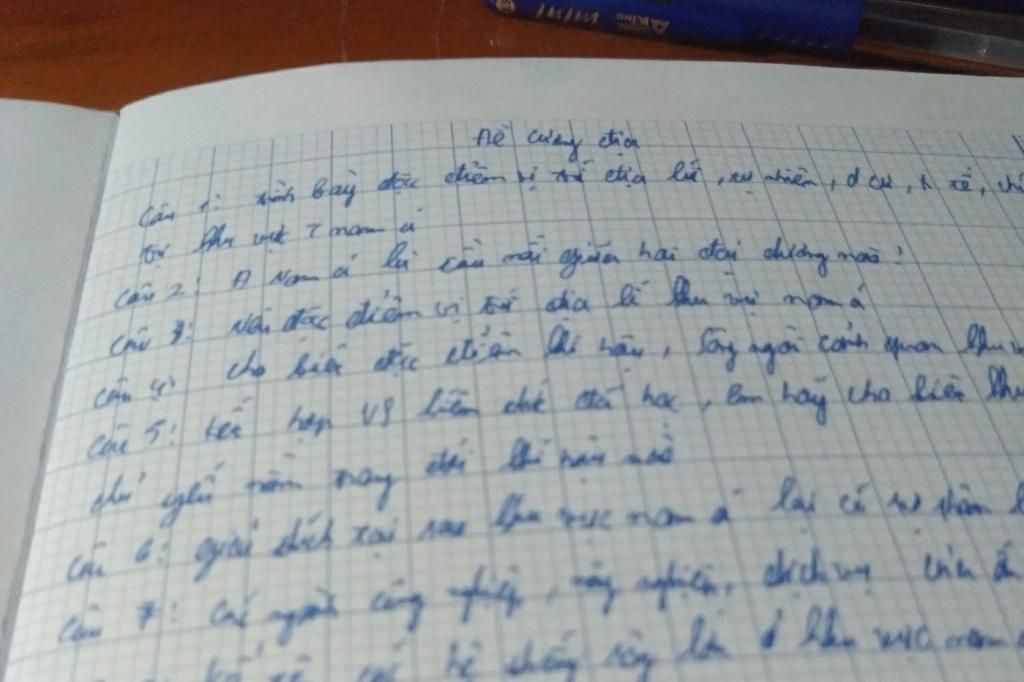 KING
Đề cương địa
Câu 1: trình bày đặc điểm vị trí địa lí, tự nhiên, d cư, k tế, ch
trị khu vực T nam á
Câu 2: Nam á là cầu nối giữa hai đại dương nào?
Câu 3: Nêu đặc điểm vị trí địa lí khu vự nam á
Câu 4: cho biết đặc điểm khí hậu, sông ngòi cảnh quan khu v
Câu 5: kết hợp liến thức đã học, em hãy cho biết khu
chủ yếu nằm trong đới khí hậu nào
Câu 6: giải thích tại sao khu vực nam á lại có sự phân
Câu 7: các ngành công nghiệp, nông nghiệp, dịch vụ của ấn
hệ thống sông lớn ở khu vực nam